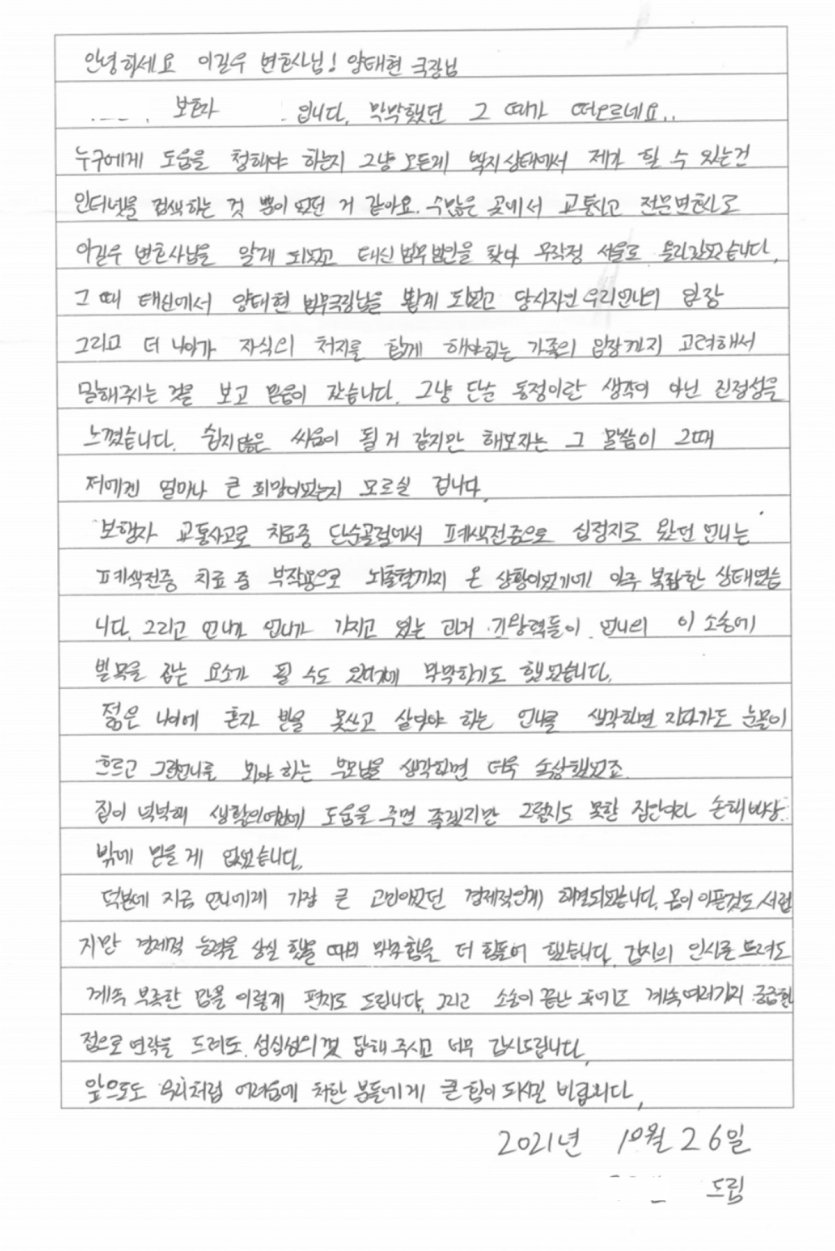 안녕하세요 이길우 변호사님! 양태현 국장님
보호자 입니다. 막막했던 그 때가 떠오르네요..
누구에게 도움을 청해야 하는지 그냥 모든게 백지상태에서 제가 할 수 있는건
인터넷을 검색하는 것 뿐이 였던 거 같아요. 수많은 곳에서 교통사고 전문변호사로
이길우 변호사님을 알게 되었고 태신법무법인을 찾아 무작정 서울로 올라갔었습니다.
그 때 태신에서 양태현 법무국장님을 뵙게 되었고 당사자인 우리언니의 입장
그리고 더 나아가 자식의 처지를 함께 해야하는 가족의 입장까지 고려해서
말해주시는 것을 보고 믿음이 갔습니다. 그냥 단순 동정이란 생각이 아닌 진정성을
느꼈습니다. 쉽지않은 싸움이 될 거 같지만 해보자는 그 말씀이 그때
저에겐 얼마나 큰 희망이였는지 모르실 겁니다.
보행자 교통사고로 치료중 단순골절에서 폐색전증으로 심정지로 왔던 언니는
폐색전증 치료 중 부작용으로 뇌출혈까지 온 상황이였기에 아주 복잡한 상태였습
니다. 그리고 언니가 가지고 있는 과거 기왕력들이 언니의 이 소송에
발목을 잡는 요소가 될 수도 있다기에 막막하기도 했었습니다.
젊은 나이에 혼자 발을 못쓰고 살아야 하는 언니를 생각하면 자다가도 눈물이
흐르고 그런언니를 봐야 하는 부모님을 생각하면 더욱 속상했었죠.
집이 넉넉해 생활의여건에 도움을 주면 좋겠지만 그렇지도 못한 집안이라 손해배상
밖에 믿을 게 없었습니다.
덕분에 지금 언니에게 가장 큰 고민이였던 경제적인게 해결되었습니다. 몸이 아픈것도 서럽
지만 경제적 능력을 상실 했을 때의 막막함을 더 힘들어 했습니다. 감사의 인사를 드려도
계속 부족한 맘을 이렇게 편지로 드립니다. 그리고 소송이 끝난 후에도 계속여러가지 궁금한
점으로 연락을 드려도 성심성의껏 답해 주시고 너무 감사드립니다.
앞으로도 우리처럼 어려움에 처한 분들에게 큰 힘이 되시길 바랍니다.
2021년 10월 26일
드림